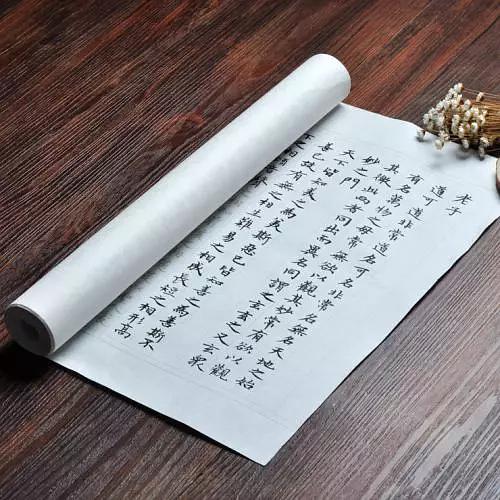 老子
道可道非常道名可名非常名無名天地之始
有名萬物之母常無欲以觀其妙常有欲以觀
其徼此兩者同出而異名同謂之玄玄之又玄眾
妙之門
天下皆知美之為美斯惡已皆知善之為善斯不
善已故有無之相生難易之相成長短之相形高
下之相